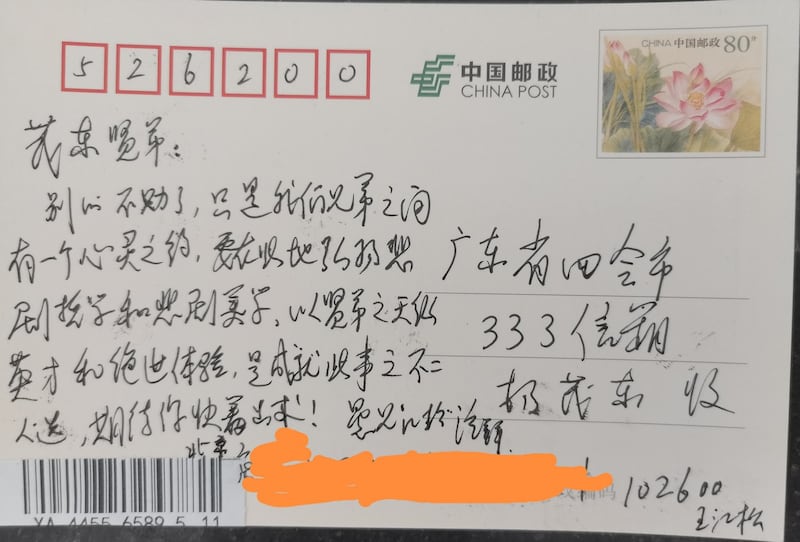 526200
中国邮政
CHINA POST
CHINA 中国邮政 80分
茂东贤弟：
别的不劝了，只是我们兄弟之间
有一个心灵之约，要在此地弘扬悲
剧哲学和悲剧美学，以贤弟之天纵
英才和绝世体验，是成就此事之不二
人选，期待你快着出来！愚兄江松注拜
广东省四会市
333信箱
杨茂东 收
北京
邮政编码 102600
王江松
XA 4455 6589 5 11